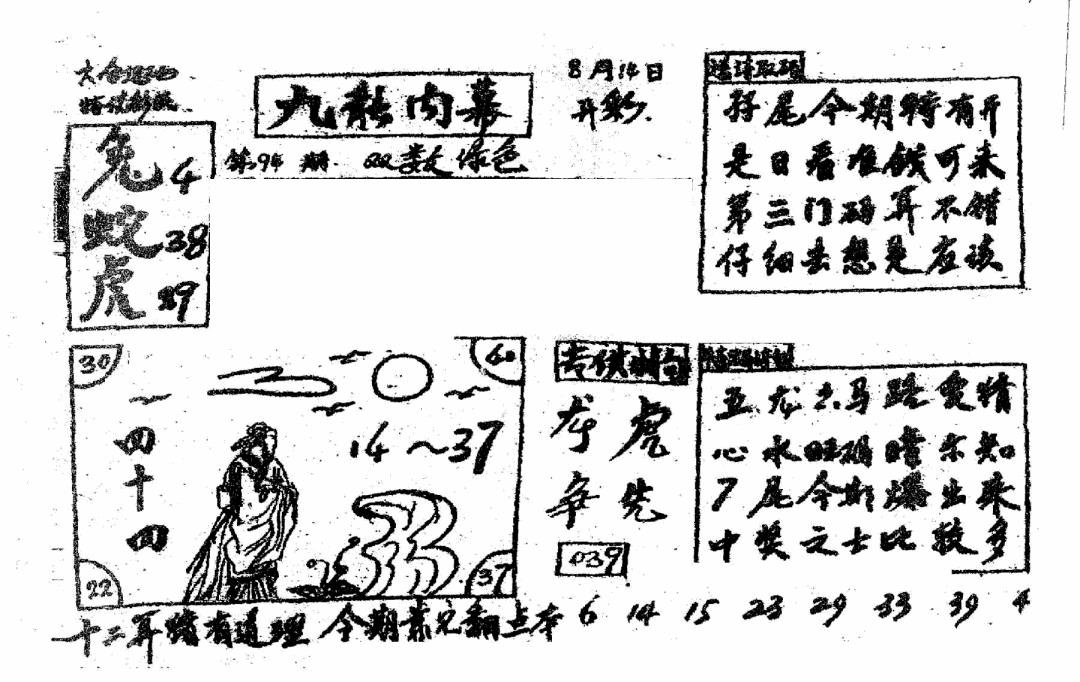 九龙内幕
8月14日
开彩.
第94期. 22数绿色
兔 4
蛇 38
虎 29
孖尾今期特有开
是日看准钱可来
第三门码算不错
仔细去想是应该
30
40
四十四
14～37
22
37
龙虎
争先
039
五龙六马
心水旺码
7尾今期爆出来
中奖之士比较多
十二算 有道理 今期 翻点本
6 14 15 23 29 33 39 4